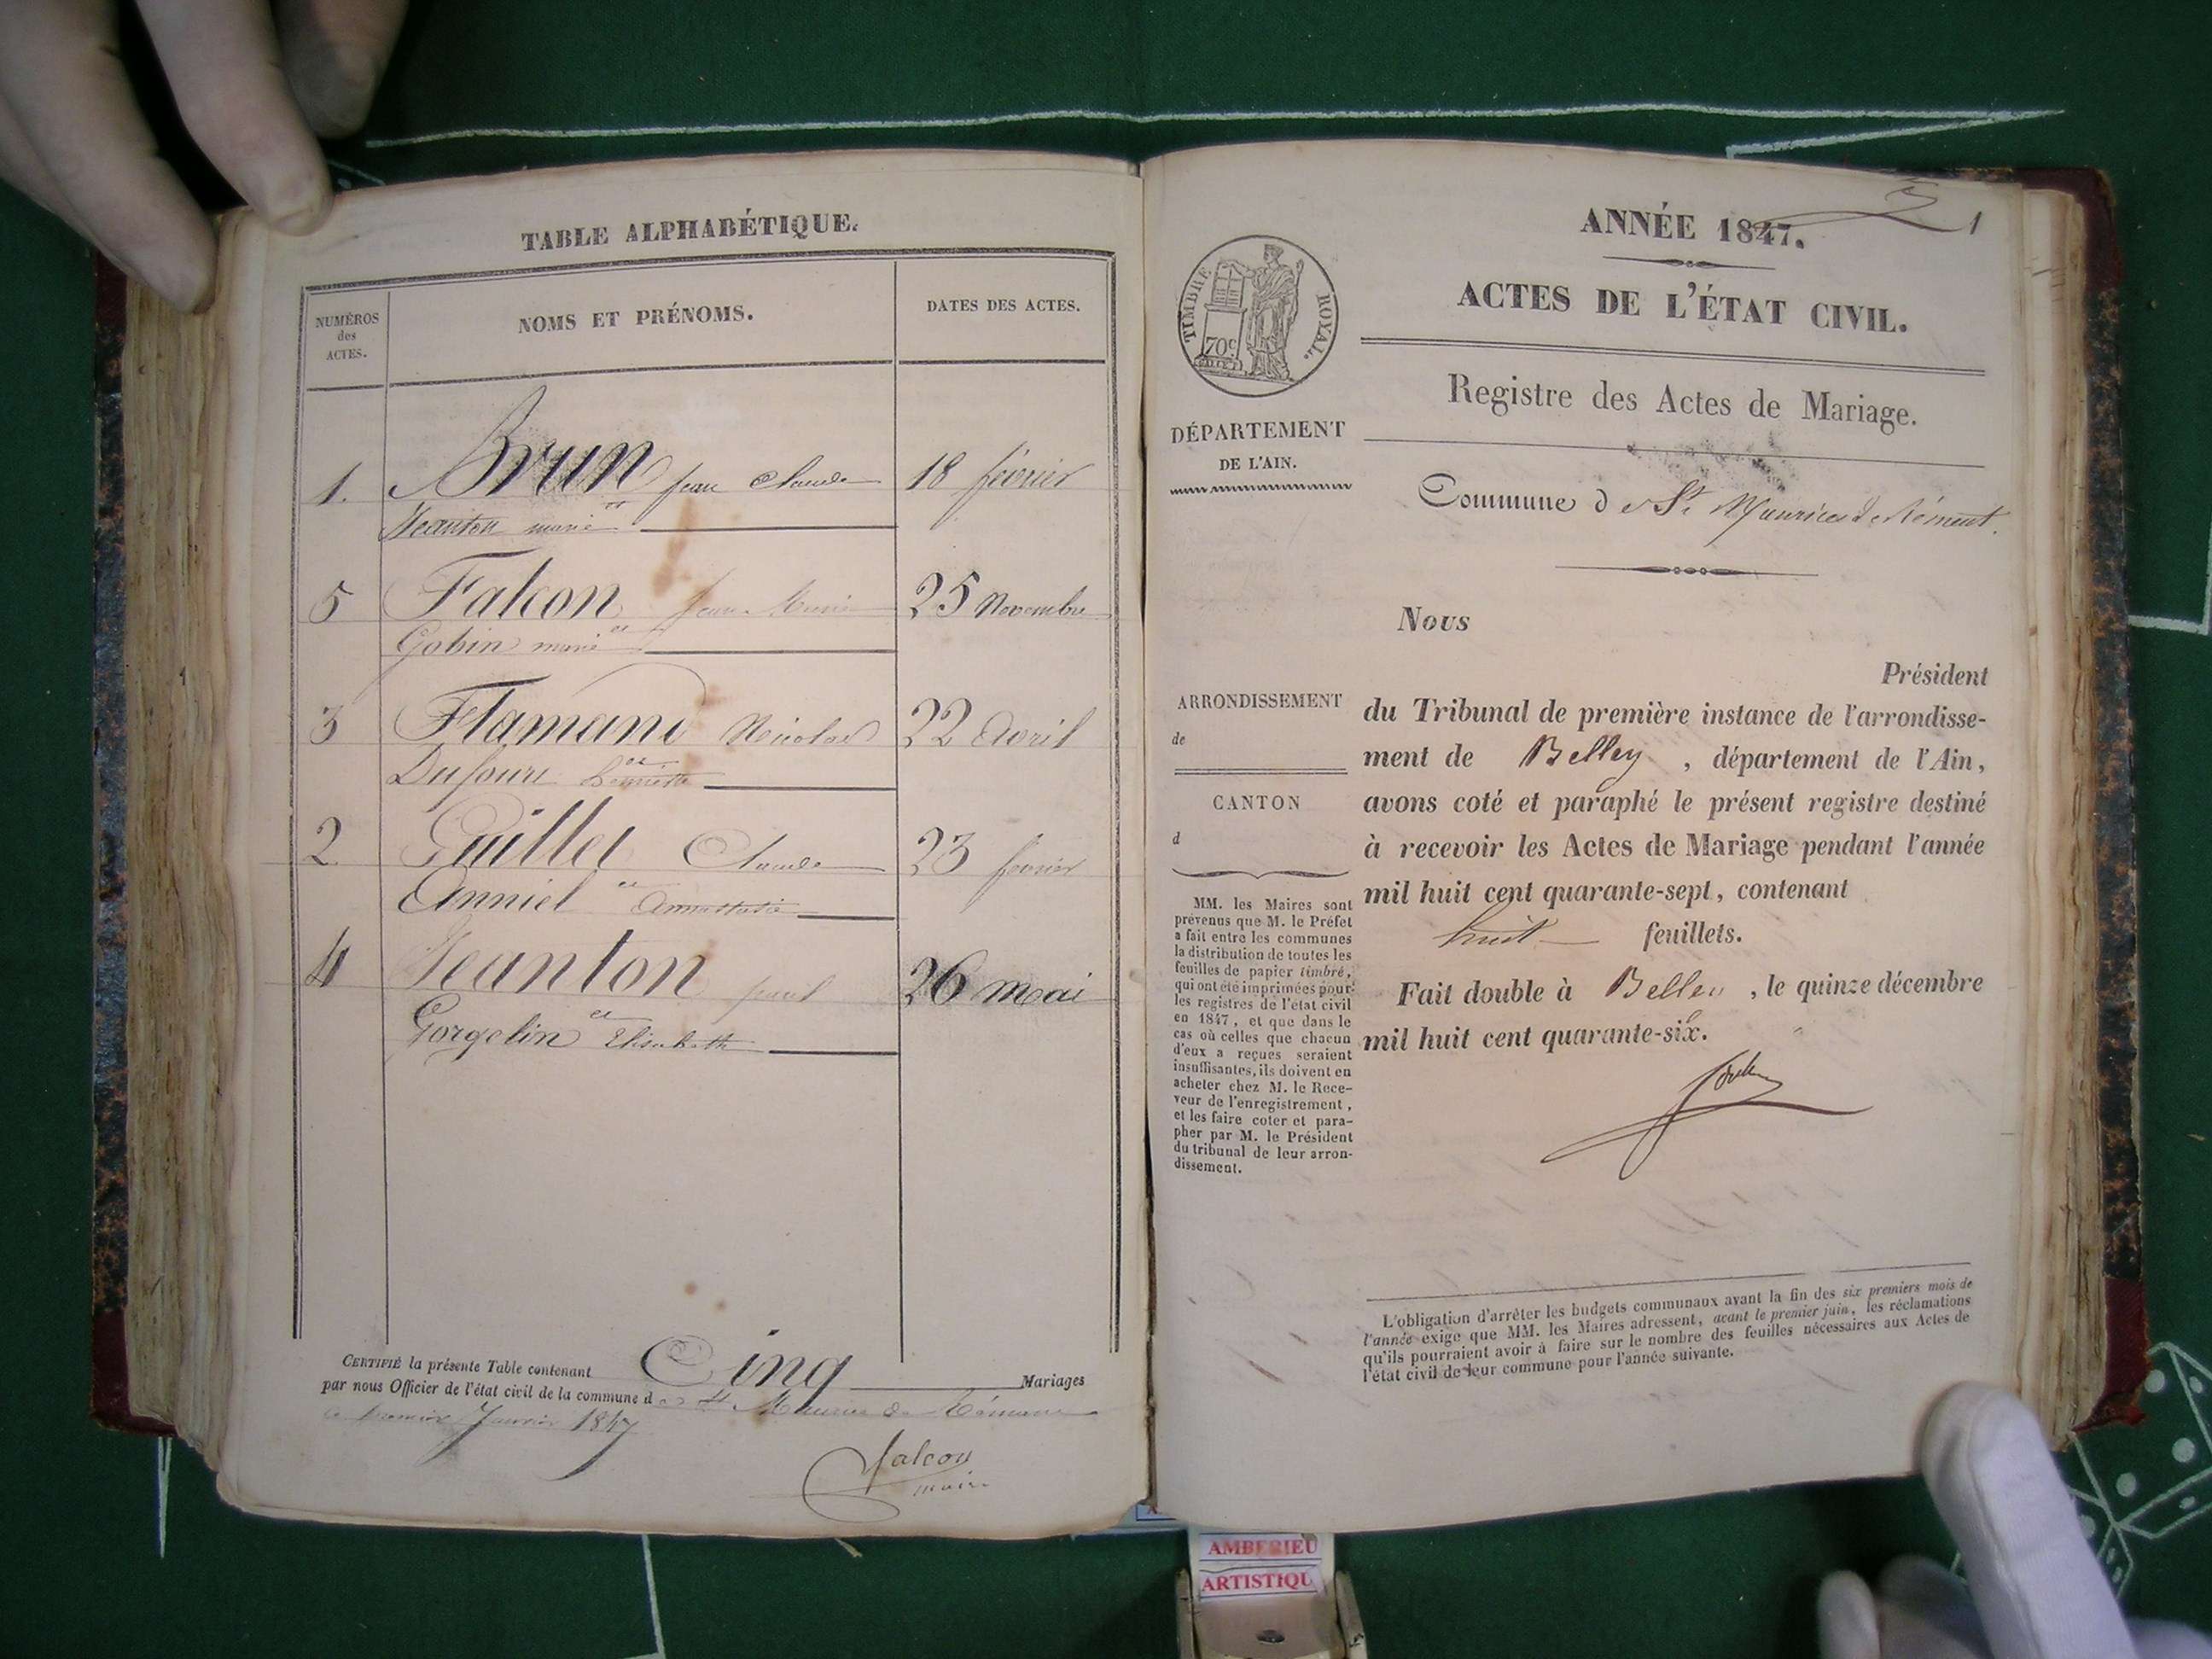 TABLE ALPHABÉTIQUE.
NUMÉROS
des
ACTES.
NOMS ET PRÉNOMS.
DATES DES ACTES.
1. Brun jean Claude 18 février
Jeanton marie
5 Falcon Jean Marie 25 Novembre
et
Gobin marie
3 Flamand Nicolas 22 Avril
et
Dufour
2 Guillet Claude 23 février
et
Anniel Annastasie
4 Jeanton paul 26 mai
et
Gorgelin Elisabeth
CERTIFIÉ la présente Table contenant Cinq Mariages
par nous Officier de l'état civil de la commune d e St Maurice de Rémens
ce premier Janvier 1847
falcon
maire
1
ANNÉE 1847.
ACTES DE L'ÉTAT CIVIL.
TIMBRE ROYAL.
70c
Registre des Actes de Mariage.
DÉPARTEMENT
DE L'AIN.
Commune d e St. Maurice de Rément.
Nous
Président
ARRONDISSEMENT
de
CANTON
d
du Tribunal de première instance de l'arrondisse-
ment de Belley , département de l'Ain,
avons coté et paraphé le présent registre destiné
à recevoir les Actes de Mariage pendant l'année
mil huit cent quarante-sept, contenant
huit feuillets.
Fait double à Belley , le quinze décembre
mil huit cent quarante-six.
MM. les Maires sont
prévenus que M. le Préfet
a fait entre les communes
la distribution de toutes les
feuilles de papier timbré,
qui ont été imprimées pour
les registres de l'état civil
en 1847, et que dans le
cas où celles que chacun
d'eux a reçues seraient
insuffisantes, ils doivent en
acheter chez M. le Rece-
veur de l'enregistrement,
et les faire coter et para-
pher par M. le Président
du tribunal de leur arron-
dissement.
L'obligation d'arrêter les budgets communaux avant la fin des six premiers mois de
l'année exige que MM. les Maires adressent, avant le premier juin, les réclamations
qu'ils pourraient avoir à faire sur le nombre des feuilles nécessaires aux Actes de
l'état civil de leur commune pour l'année suivante.
AMBERIEU
ARTISTIQU